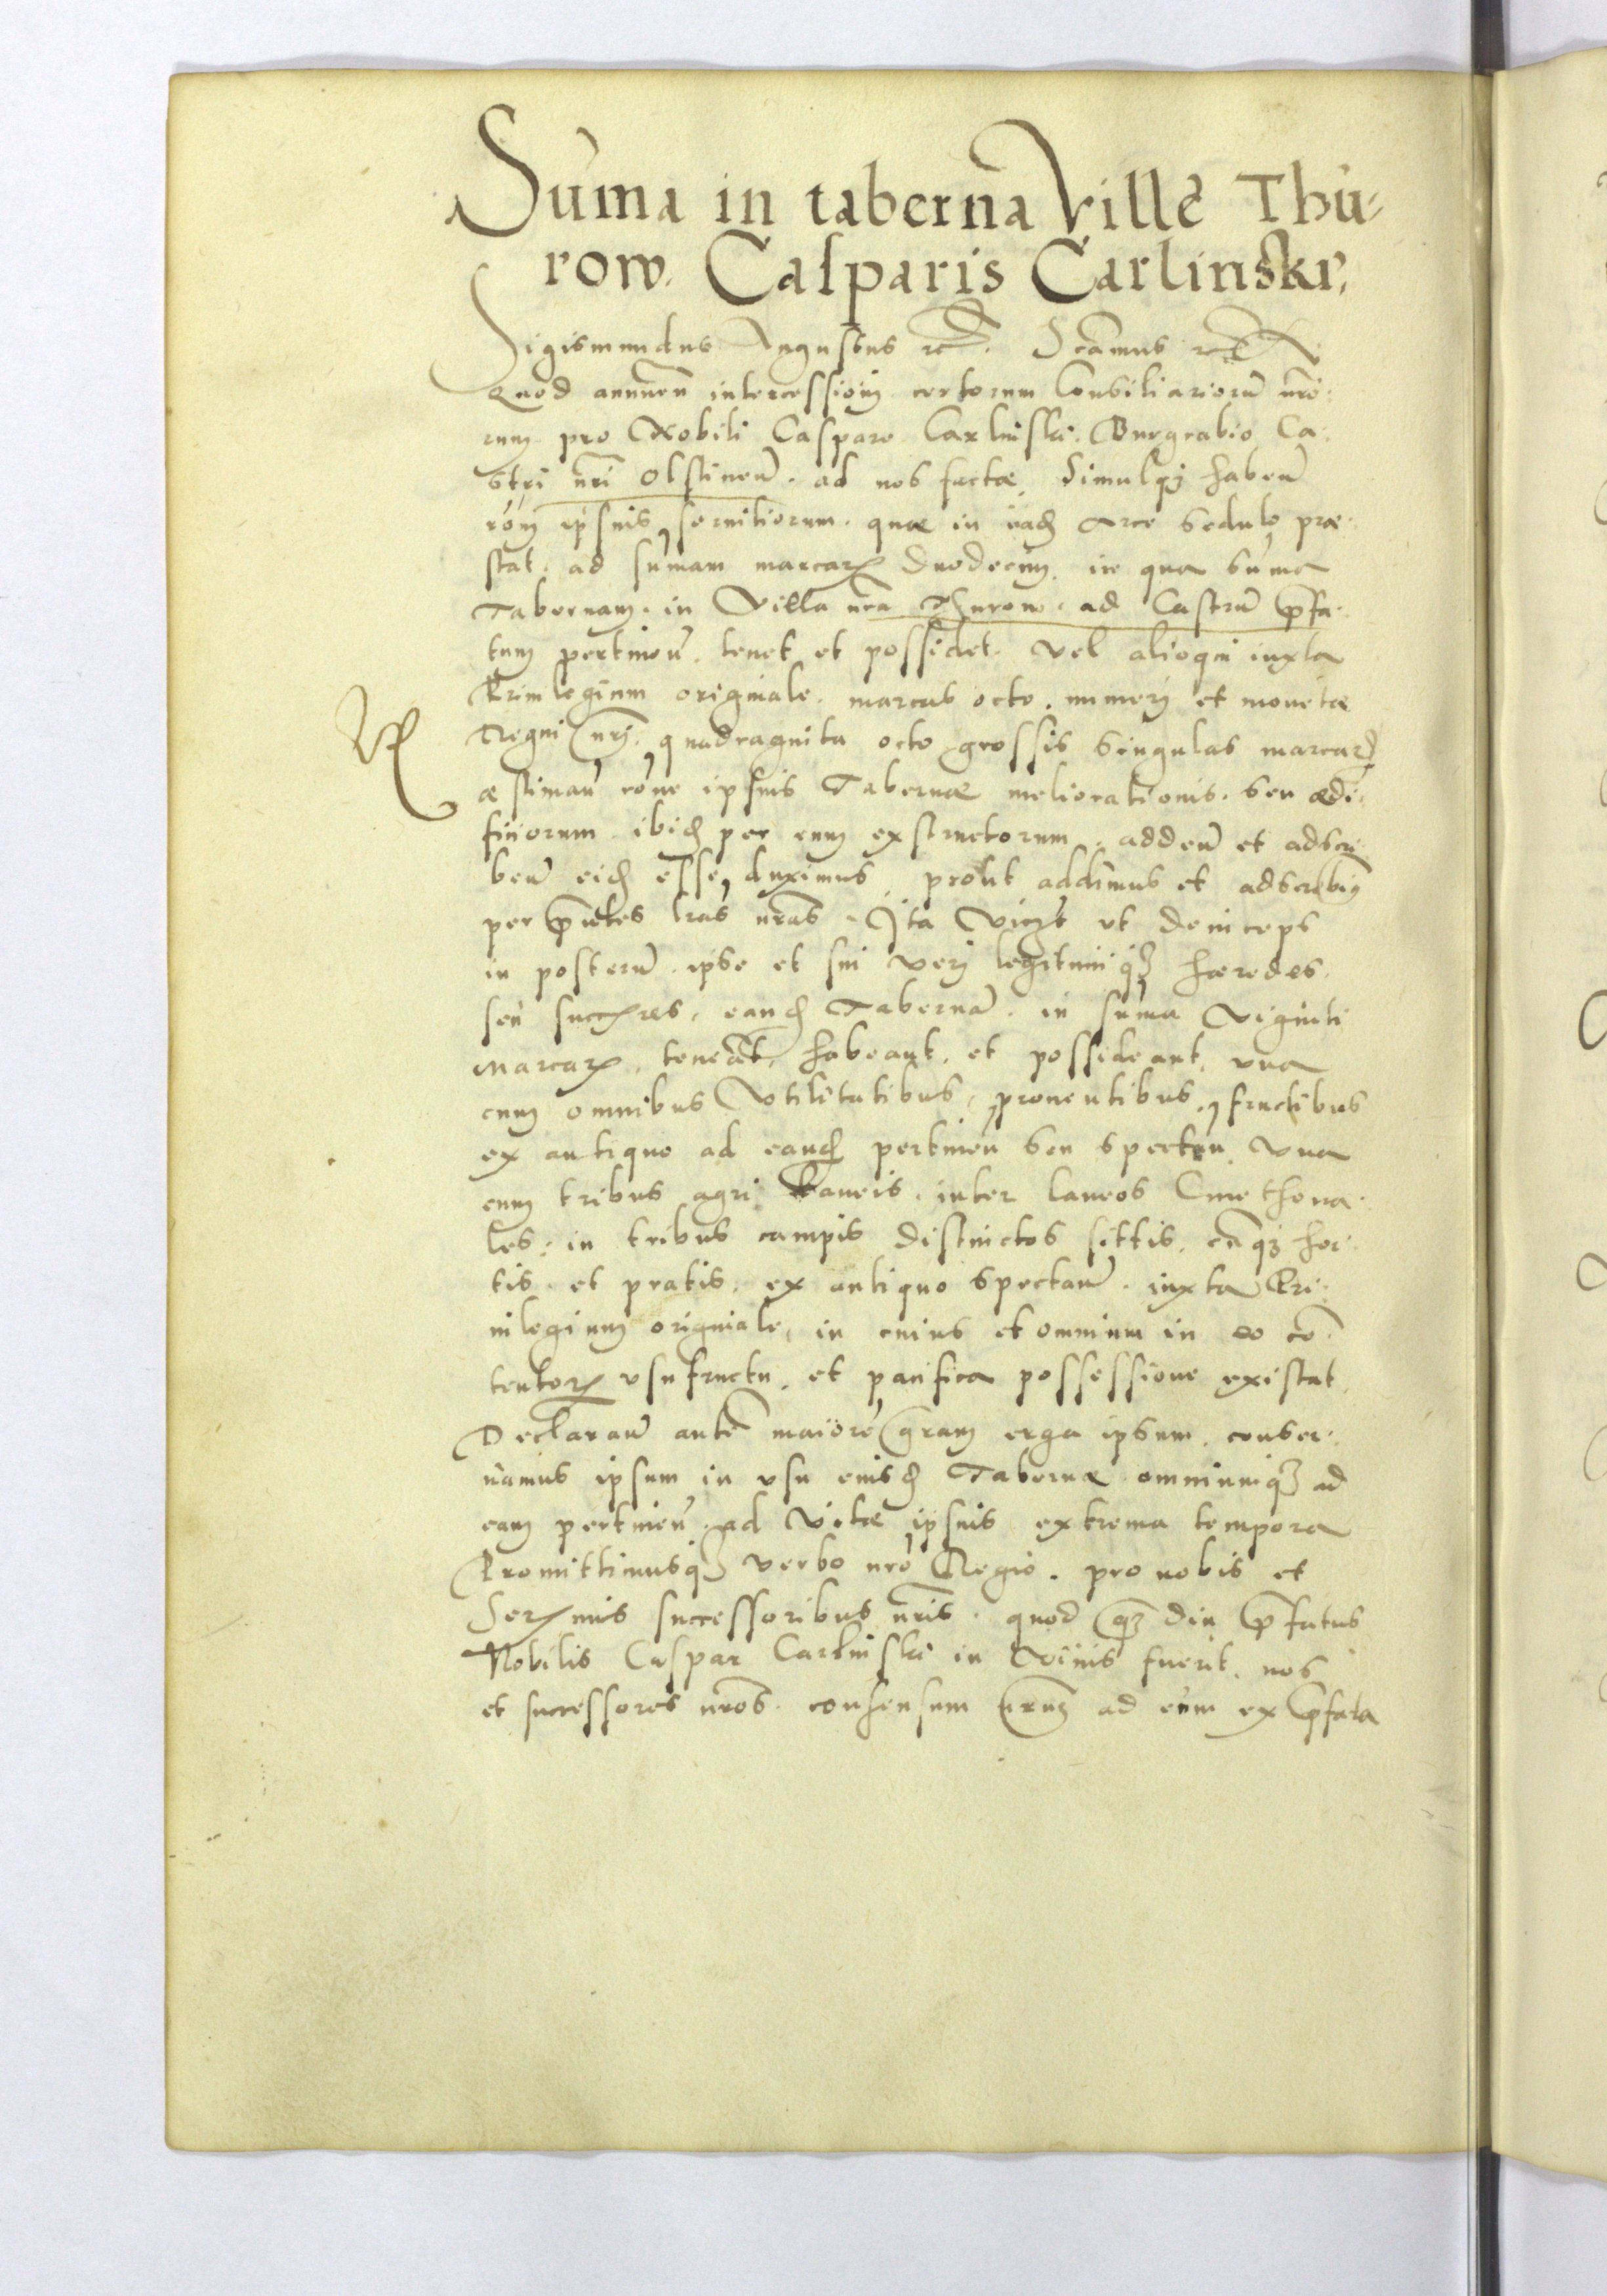 Suma in taberna Ville Thu-
row. Casparis Carlinski.
Sigismundus Augustus etc. Scamus etc.
Quod annuen intercessioni certorum Consiliarioru nro-
rum pro Nobili Caspare Carlinski Burgrabio Ca-
stri nri Olstinen. ad nos factæ. Simulqz haben
rõnem ipsius servitiorum. quæ in eadem Arce sedulo præ-
stat. ad sumam marcarum duodecim. in qua suma
Tabernam. in Villa nra Thurow. ad Castru præfa-
tum pertinen. tenet et possidet. vel alioqui iuxta
Privilegium originale. marcas octo. numeri et monetæ
Regni nri. quadraginta octo grossis singulas marcas
æstiman rone ipsius Tabernæ meliorationis. seu ædi-
ficiorum ibidem per eum exstructorum. adden et adscri-
ben eidem esse duximus. prout addimus et adscribimus
per pntes lras nras. Ita videlicet ut deinceps
in posteru. ipse et sui veri legitimiqz hæredes.
seu successores. eandem Taberna. in suma viginti
Marcarum. teneat. habeant. et possideant. una
cum omnibus Utilitatibus. proventibus, fructibus
ex antiquo ad eandem pertinen seu spectan. una
cum tribus agri laneis. inter laneos Cmethona-
les. in tribus campis distinctos sittis. cumqz hor-
tis. et pratis. ex antiquo spectan. iuxta Pri-
vilegium originale, in cuius et omnium in eo co-
tentorum usufructu. et pacifica possessione existat.
Declaran aute maiore gram erga ipsum. conser-
vamus ipsum in usu eiusdem Tabernæ omniumqz ad
eam pertinen. ad Vitæ ipsius extrema tempora
Promittimusqz verbo nro Regio. pro nobis et
Serenmis successoribus nris. quod qz diu præfatus
Nobilis Caspar Carlinski in vivis fuerit. nos
et successores nros. consensum nrum ad eum ex præfata